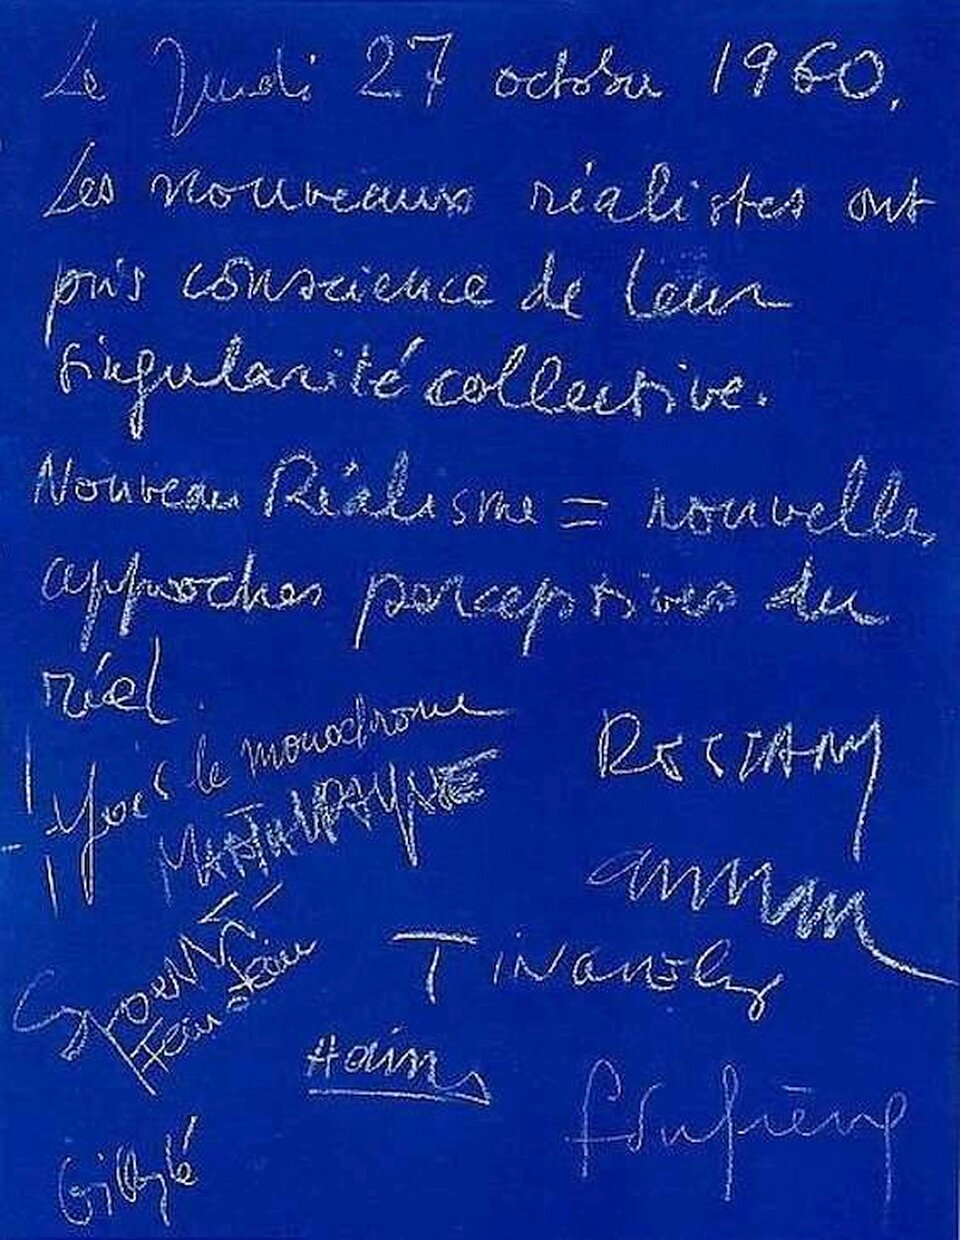 Le Jeudi 27 octobre 1960.
Les nouveaux réalistes ont
pris conscience de leur
singularité collective.
Nouveau Réalisme = nouvelles
approches perceptives du
réel.
Yves le monochrome
RESTANY
MARTIAL RAYSSE
arman
Spoerri
Tinguely
Hains
f dufrêne
Villeglé